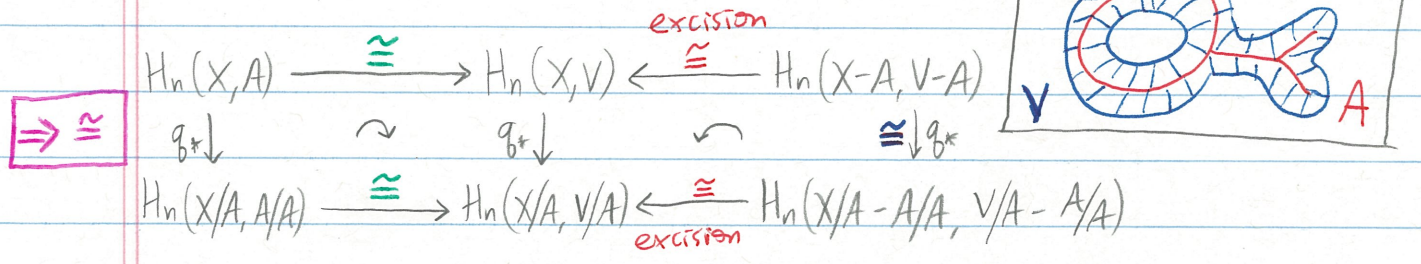 excision
Hₙ(X,A) ≅ → Hₙ(X,V) ← ≅ Hₙ(X-A, V-A)
⇒ ≅ q*↓ ↷ q*↓ ↶ ≅↓q* V A
Hₙ(X/A, A/A) ≅ → Hₙ(X/A, V/A) ← ≅ Hₙ(X/A - A/A, V/A - A/A)
excision